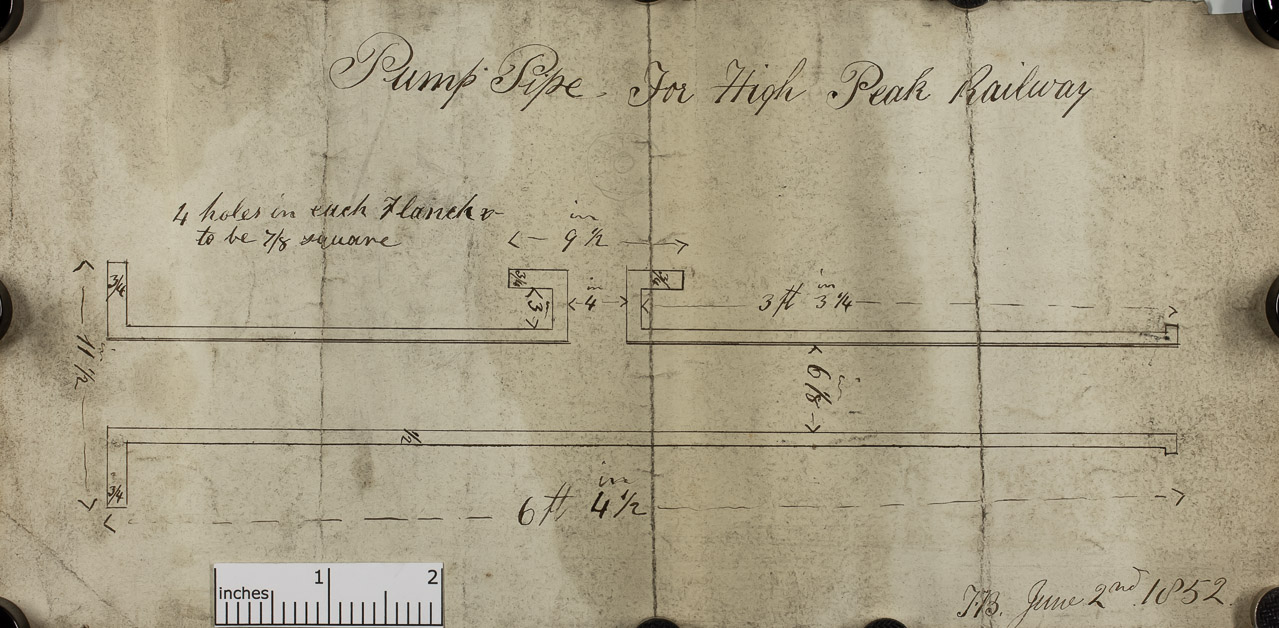 Pump Pipe. For High Peak Railway
4 holes in each Flanch
to be 7/8 square
in
9 1/2
3/4
3/4
3/4
3
in
4
in
3 ft 3 1/4
11 1/2
in
6 1/8
in
1/2
3/4
in
6 ft 4 1/2
inches 1 2
June 2nd. 1852.